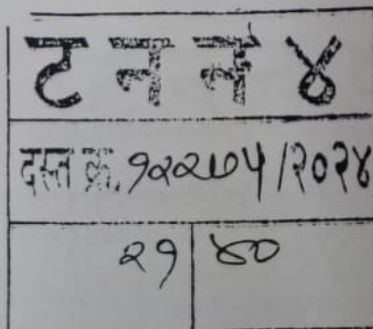 ट न न ४
दस्त क्र. १२२७५ /२०२४
२१ ४०